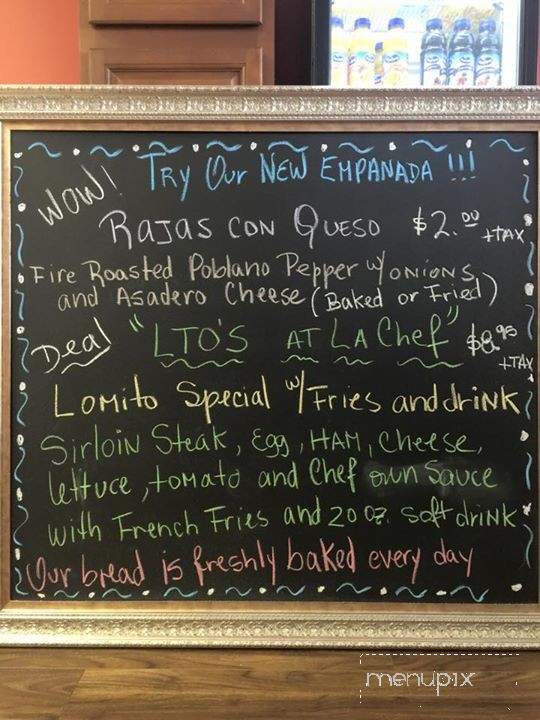 WOW!
TRY Our NEW EMPANADA !!!
RAJAS CON QUESO $2.00 +TAX
Fire Roasted Poblano Pepper w/ onions,
and Asadero Cheese (Baked or Fried)
Deal "LTO'S AT LA Chef" $8.95 +TAX
Lomito Special w/ Fries and drink
Sirloin Steak, Egg, HAM, Cheese,
lettuce, tomato and Chef own Sauce
with French Fries and 20 oz. soft drink
Our bread is freshly baked every day
menupix